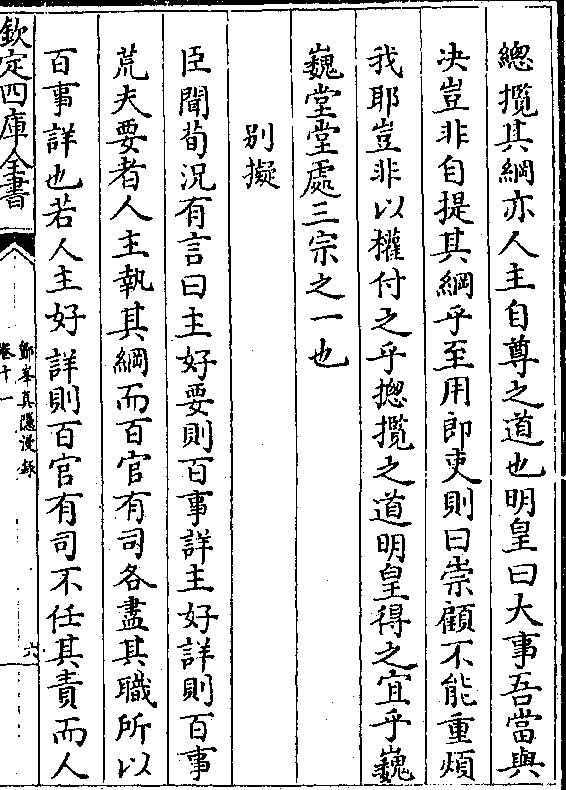 總攬其綱亦人主自尊之道也明皇曰大事吾當與
决豈非自提其綱乎至用郎吏則曰崇顧不能重煩
我耶豈非以權付之乎摠攬之道明皇得之宜乎巍
巍堂堂處三宗之一也
别擬
臣聞荀况有言曰主好要則百事詳主好詳則百事
荒夫要者人主執其綱而百官有司各盡其職所以
百事詳也若人主好詳則百官有司不任其責而人
欽定四庫全書
鄮峯真隱漫錄
卷十一
六